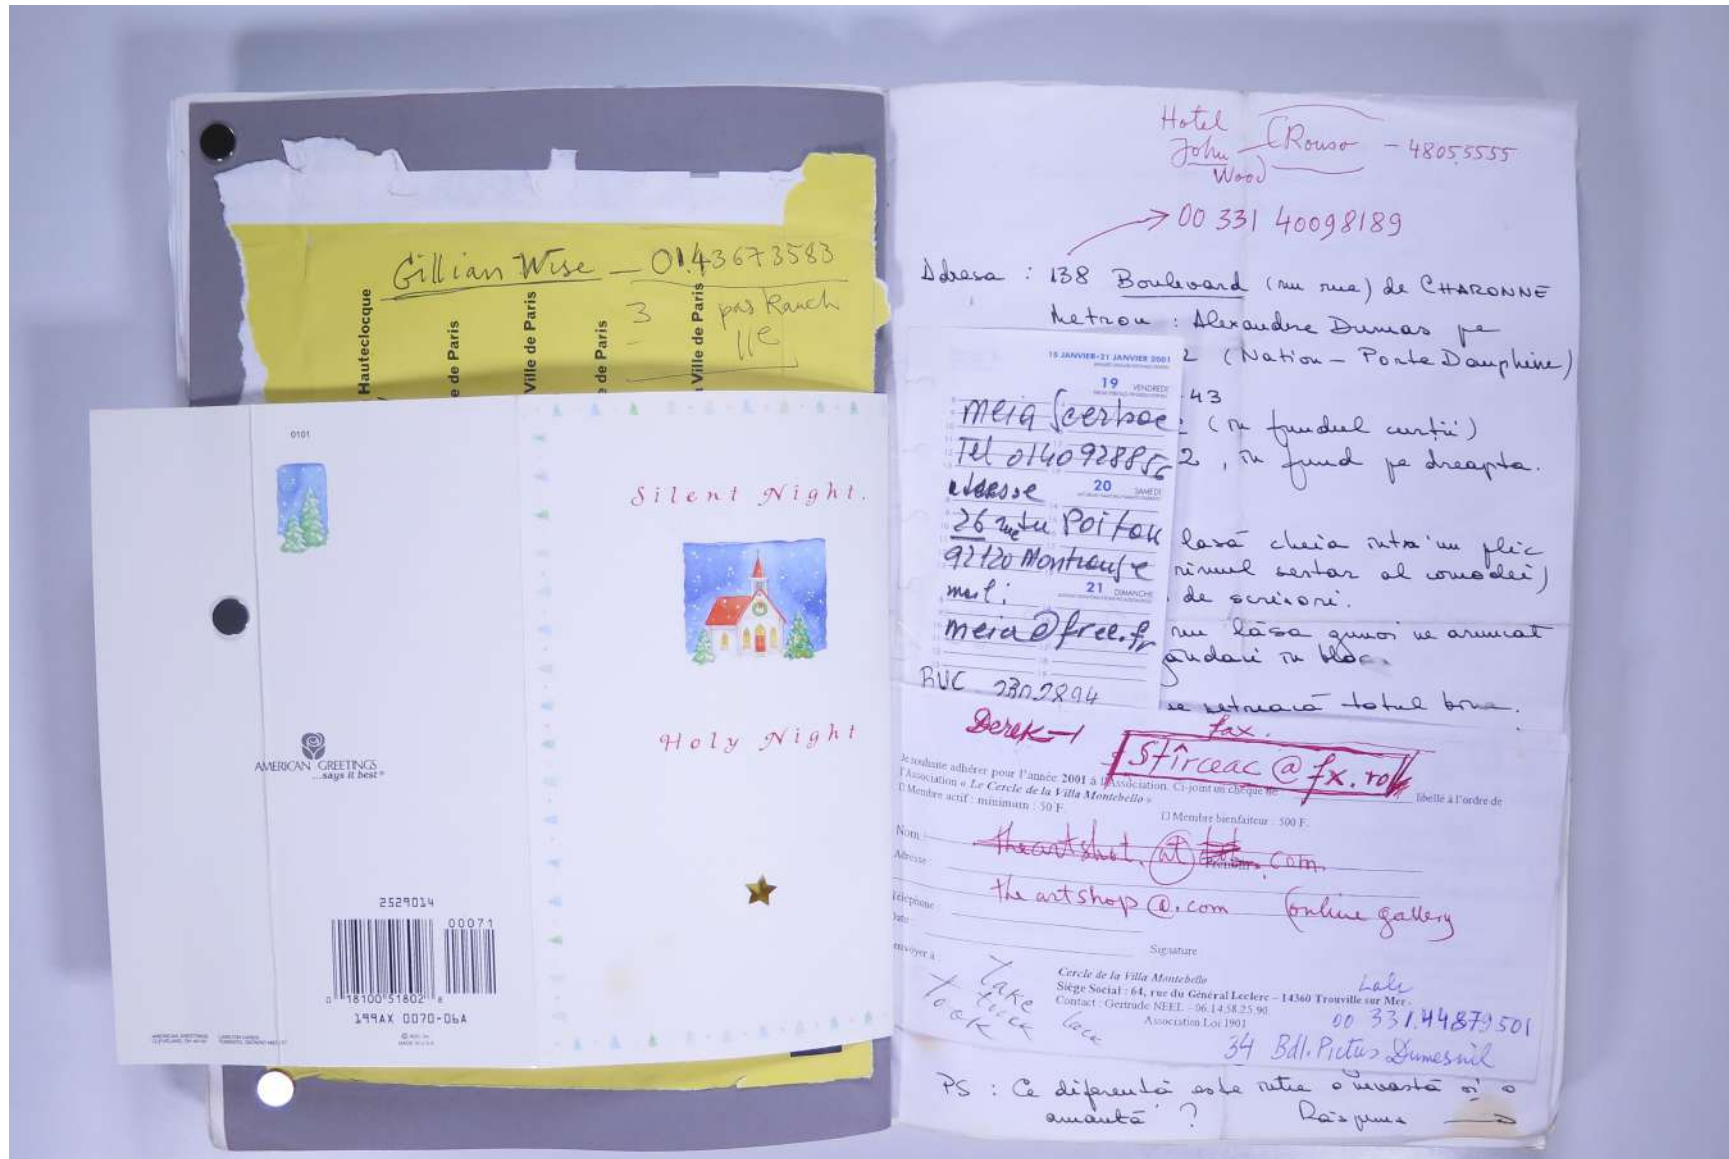 Gillian Wise — 01.43673583
3 pas Rauch
11e
Hauteclocque
de Paris
Ville de Paris
de Paris
Ville de Paris
0101
Silent Night.
Holy Night
AMERICAN GREETINGS
...says it best®
2529014
00071
0 18100 51802 8
199AX 0070-06A
Hotel
John
Wood
Rouso — 48055555
00 331 40098189
Adresa : 138 Boulevard (nu rue) de CHARONNE
Metrou : Alexandre Dumas pe
2 (Nation – Porte Dauphine)
43
(în fundul curții)
2, în fund pe dreapta.
lasă cheia intr'un plic
sertar al comodei)
de scrisori.
nu lăsa gunoi ne aruncat
în bloc.
totul bine.
15 JANVIER-21 JANVIER 2001
19 VENDREDI
meia
Tel 0140928856
20 SAMEDI
26 rue du Poitou
92120 Montrouge
21 DIMANCHE
mail:
meia@free.fr
RUC 2302894
Derek-1
fax.
stîrceac@fx.ro
Je souhaite adhérer pour l'année 2001 à l'Association. Ci-joint un chèque de
libellé à l'ordre de
l'Association « Le Cercle de la Villa Montebello »
□ Membre actif : minimum : 50 F.
□ Membre bienfaiteur : 500 F.
Nom :
theartshot. at .com
Adresse :
the artshop @.com (online gallery
Téléphone :
Date :
Signature
envoyer à
Take
Cercle de la Villa Montebello
Siège Social : 64, rue du Général Leclerc – 14360 Trouville sur Mer -
Contact : Gertrude NEEL – 06.14.58.25.90
Association Loi 1901
Took
luck
Lale
00 331.44879501
34 Bdl. Pictus Dumesnil
PS : Ce diferentă este intre o nevastă și o
amantă ? Răspuns →